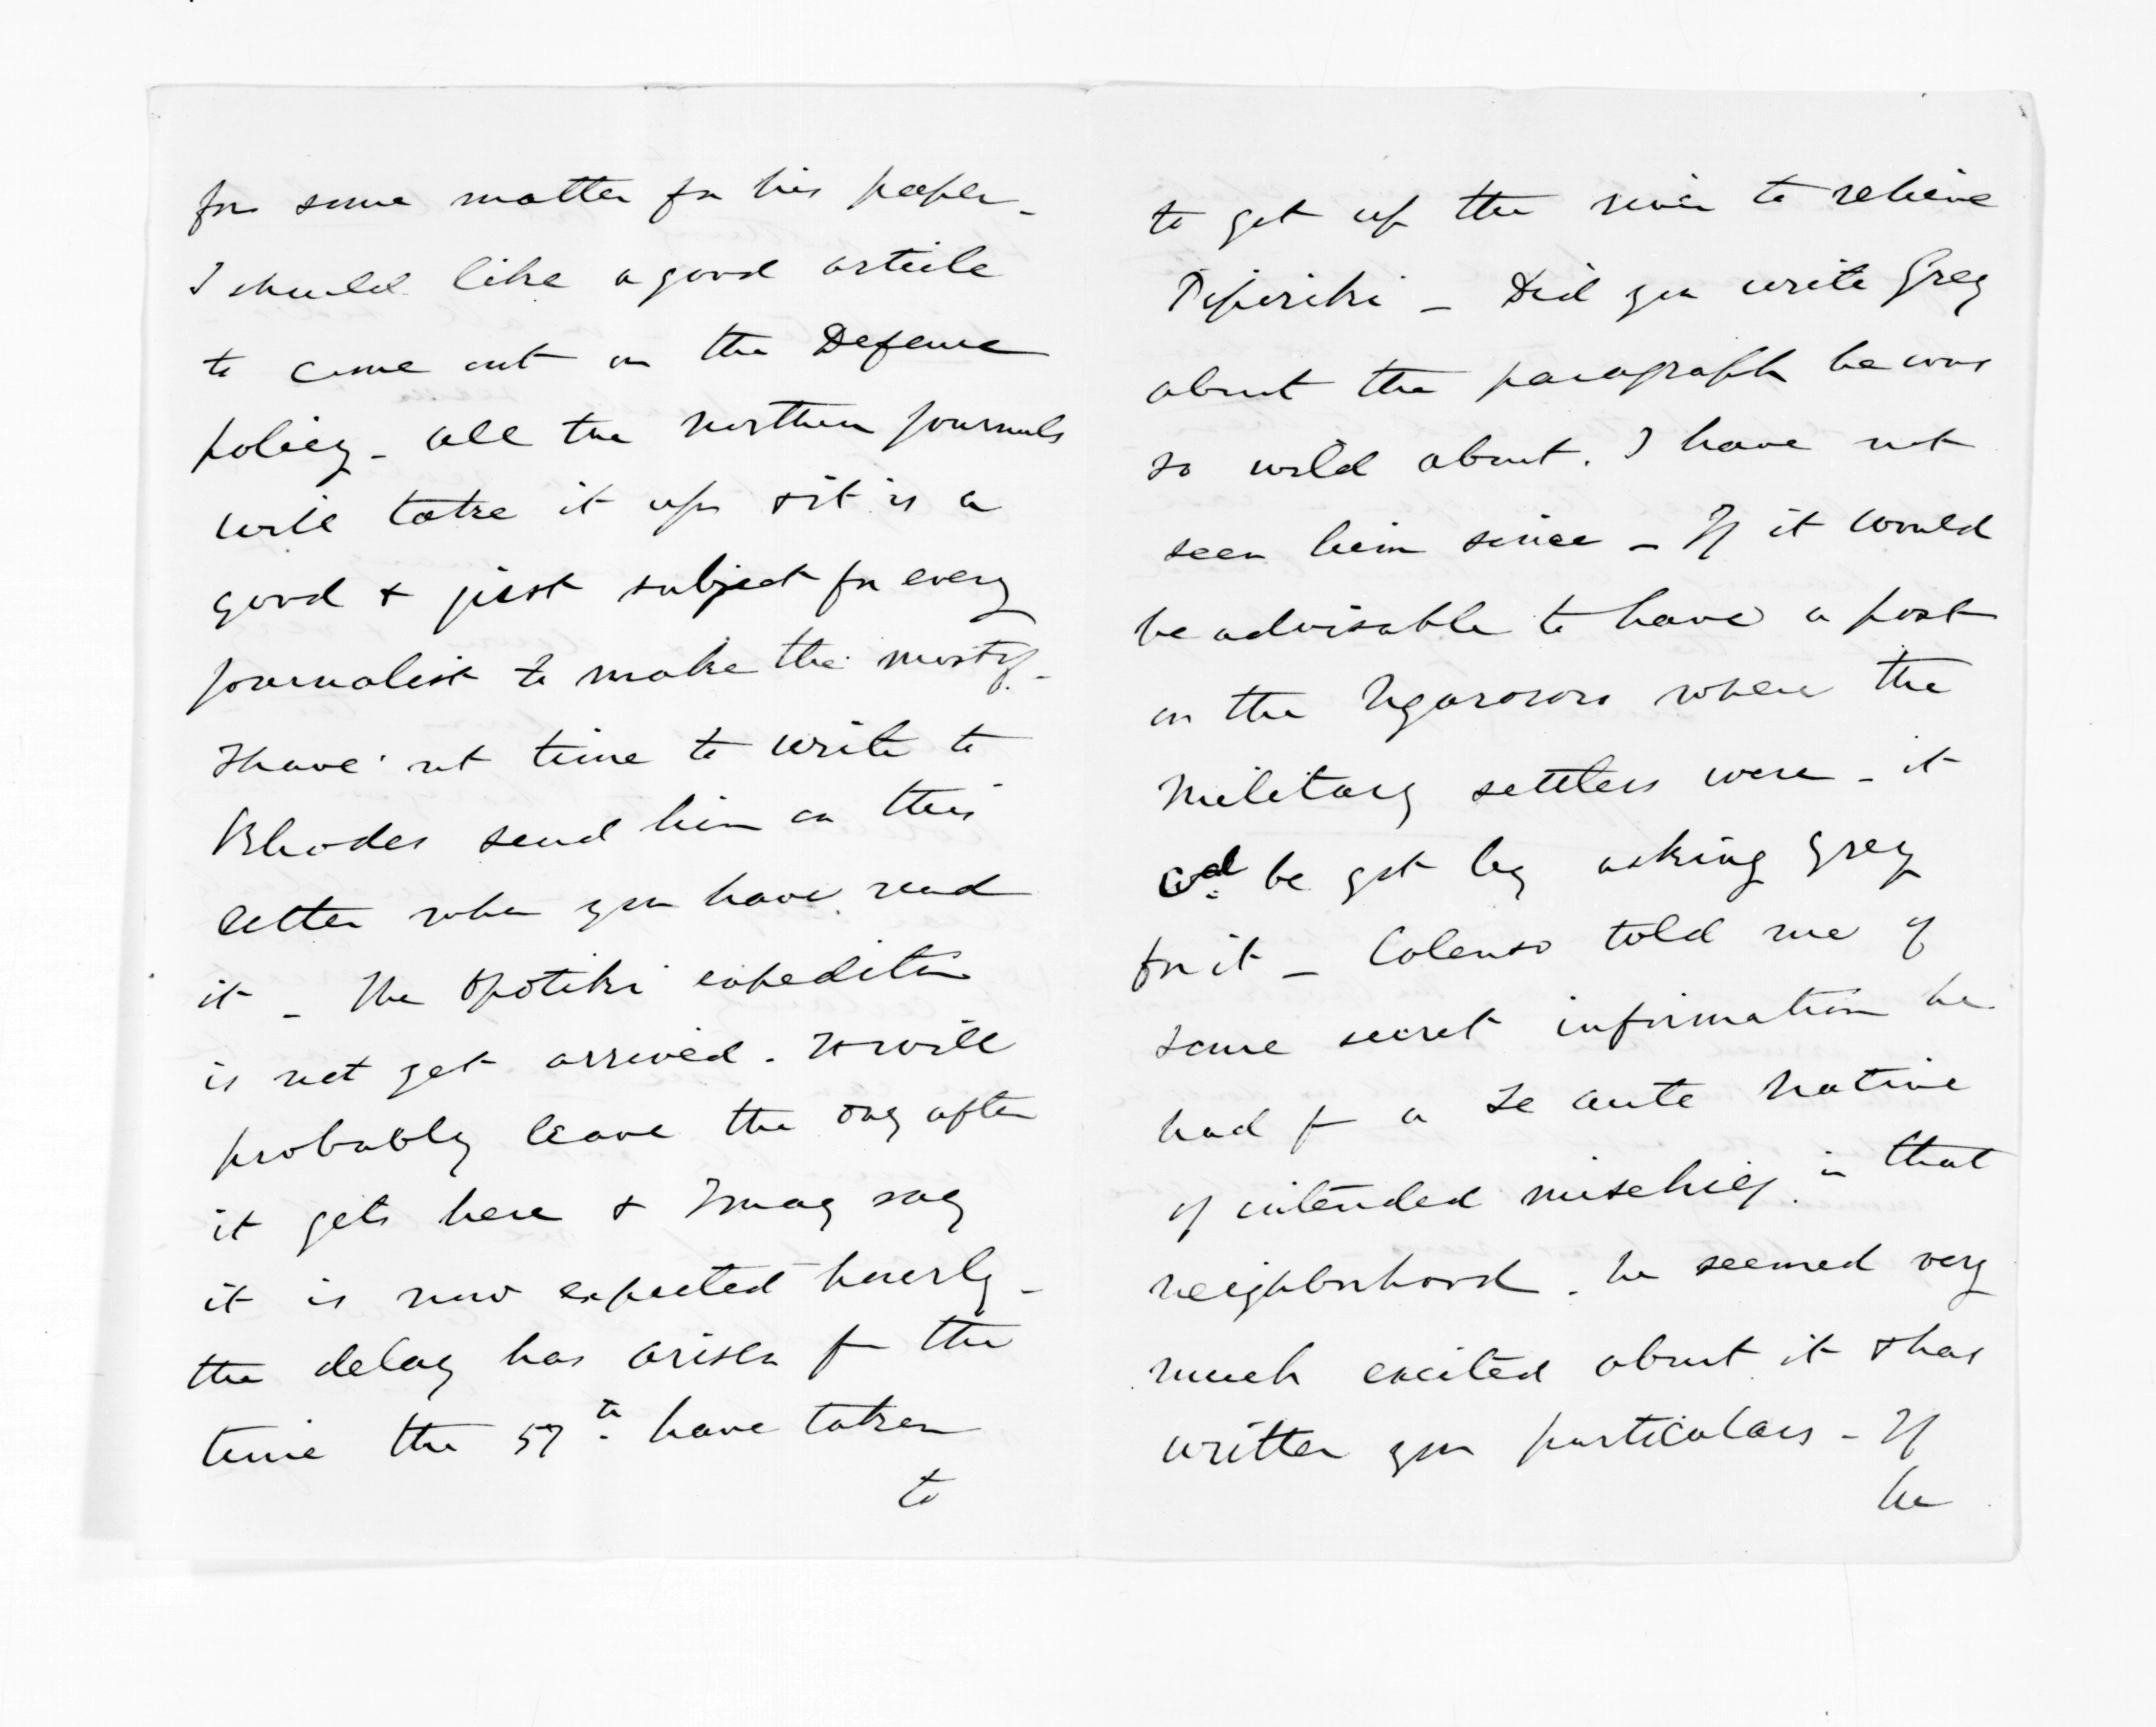 for some matter for his paper -
I should like a good article
to come out on the Defence
policy - all the northern journals
will take it up & it is a
good & just subject for every
journalist to make the most of. -
I have not time to write to
Rhodes send him on this
letter when you have read
it - The Opotiki expedition
is not yet arrived. It will
probably leave the day after
it gets here & I may say
it is now expected hourly -
the delay has arisen fm the
time the 57th have taken
to
to get up the river to relieve
Pipiriki - Did you write Grey
about the paragraph he was
so wild about. I have not
seen him since - If it would
be advisable to have a post
on the Ngaroro where the
Military settlers were - it
wd be got by asking Grey
for it - Colenso told me of
some secret information he
had fm a Te Aute Native
of intended mischief in that
neighborhood. he seemed very
much excited about it & has
written you particulars - If
he